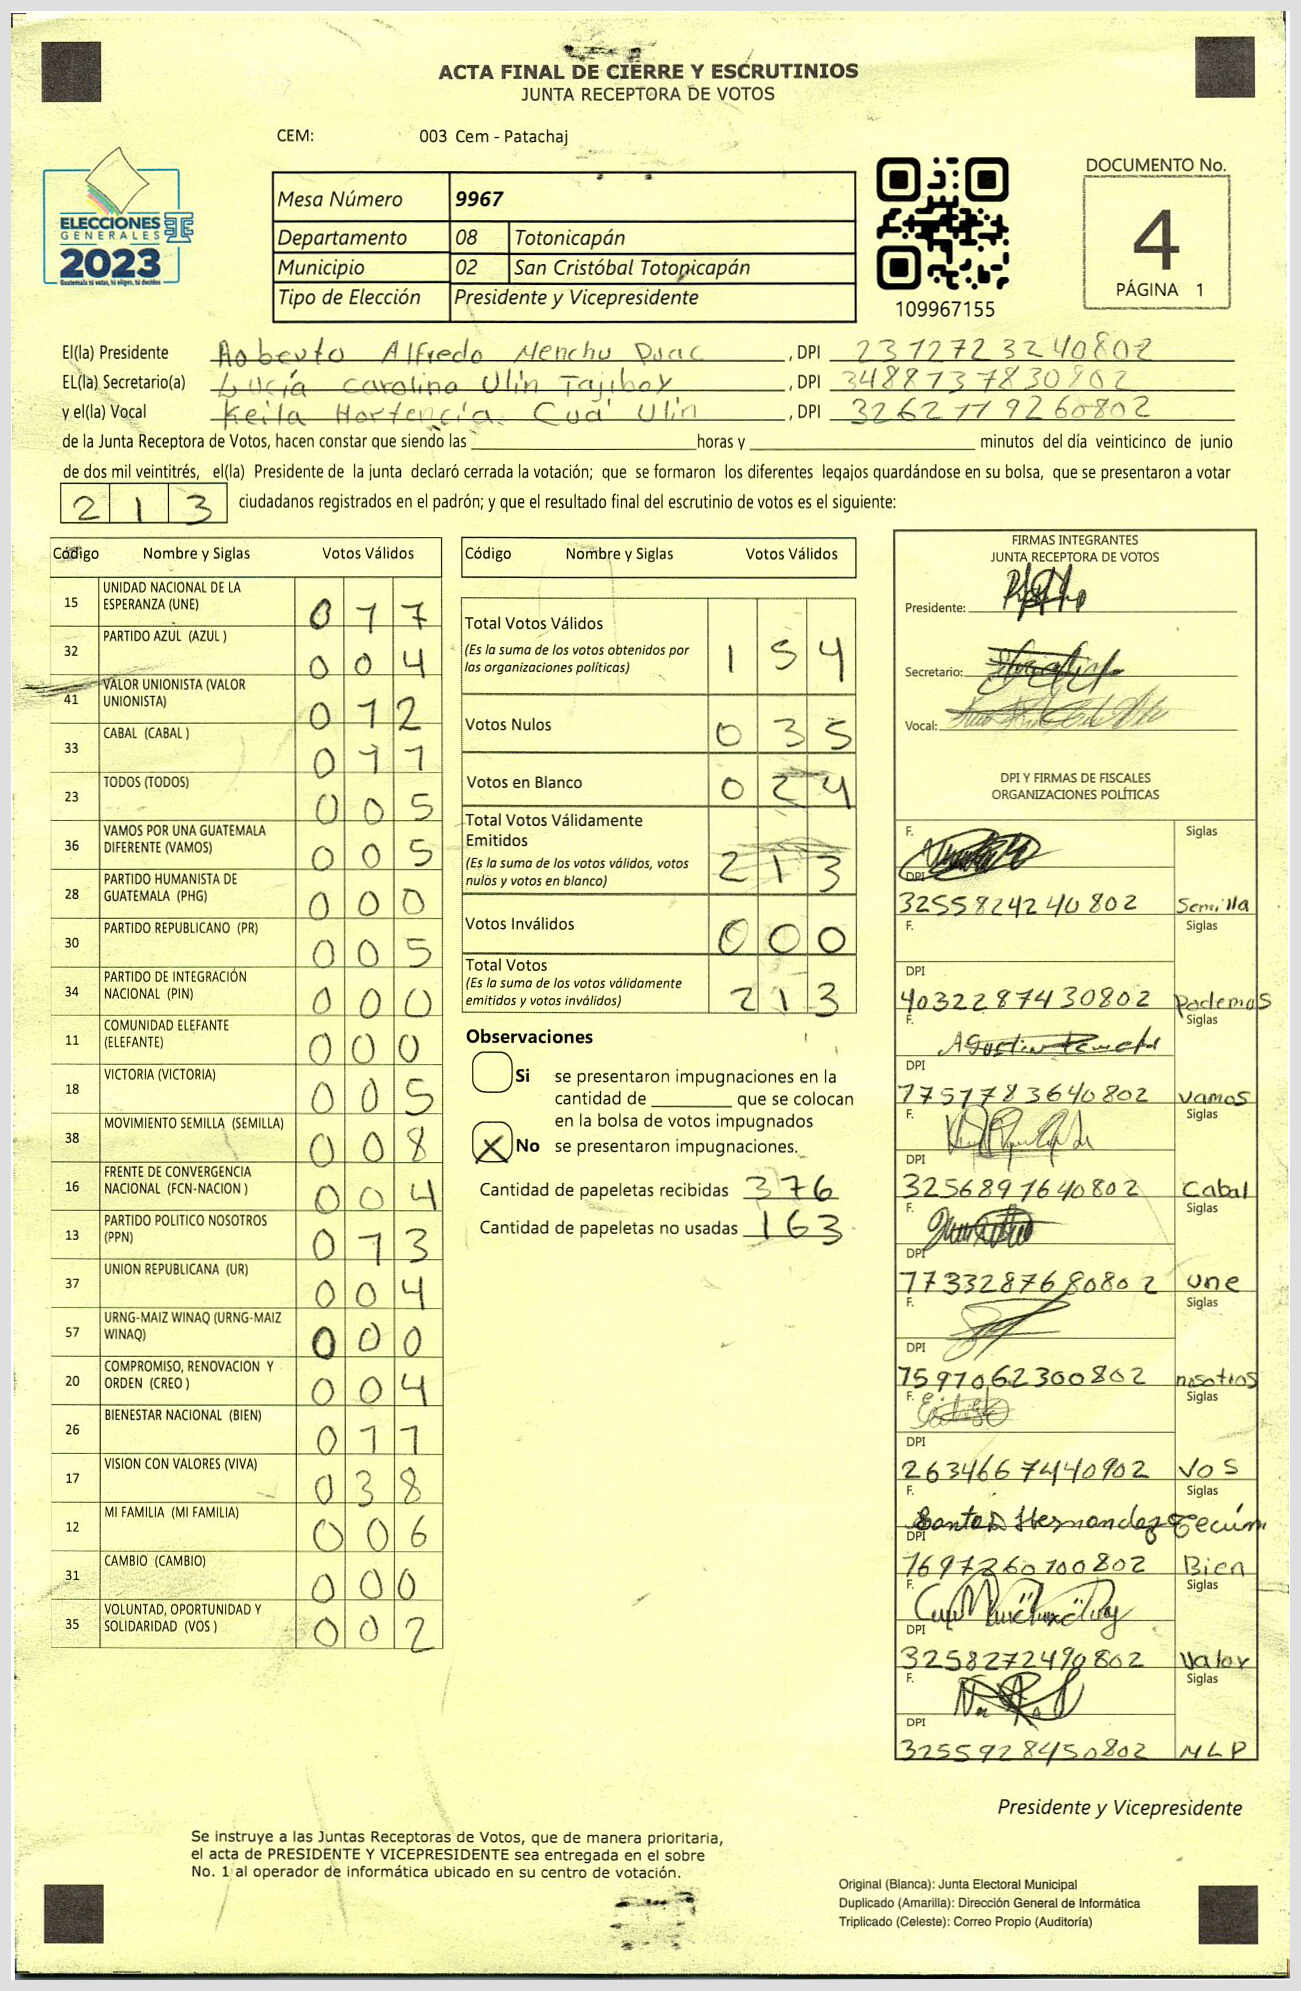 ACTA FINAL DE CIERRE Y ESCRUTINIOS
JUNTA RECEPTORA DE VOTOS
CEM: 003 Cem - Patachaj
ELECCIONES
GENERALES
2023
Guatemala tú votas, tú eliges, tú decides
Mesa Número 9967
Departamento 08 Totonicapán
Municipio 02 San Cristóbal Totonicapán
Tipo de Elección Presidente y Vicepresidente
109967155
DOCUMENTO No.
4
PÁGINA 1
El(la) Presidente Roberto Alfredo Menchu , DPI 2312723240802
EL(la) Secretario(a) Lucía Carolina Ulin Tajiboy , DPI 3488737830802
y el(la) Vocal Keila Hortencia Cua Ulin , DPI 3262119260802
de la Junta Receptora de Votos, hacen constar que siendo las horas y minutos del día veinticinco de junio
de dos mil veintitrés, el(la) Presidente de la junta declaró cerrada la votación; que se formaron los diferentes legajos quardándose en su bolsa, que se presentaron a votar
213 ciudadanos registrados en el padrón; y que el resultado final del escrutinio de votos es el siguiente:
Código Nombre y Siglas Votos Válidos
15 UNIDAD NACIONAL DE LA ESPERANZA (UNE) 017
32 PARTIDO AZUL (AZUL ) 004
41 VALOR UNIONISTA (VALOR UNIONISTA) 012
33 CABAL (CABAL ) 011
23 TODOS (TODOS) 005
36 VAMOS POR UNA GUATEMALA DIFERENTE (VAMOS) 005
28 PARTIDO HUMANISTA DE GUATEMALA (PHG) 000
30 PARTIDO REPUBLICANO (PR) 005
34 PARTIDO DE INTEGRACIÓN NACIONAL (PIN) 000
11 COMUNIDAD ELEFANTE (ELEFANTE) 000
18 VICTORIA (VICTORIA) 005
38 MOVIMIENTO SEMILLA (SEMILLA) 008
16 FRENTE DE CONVERGENCIA NACIONAL (FCN-NACION ) 004
13 PARTIDO POLITICO NOSOTROS (PPN) 013
37 UNION REPUBLICANA (UR) 004
57 URNG-MAIZ WINAQ (URNG-MAIZ WINAQ) 000
20 COMPROMISO, RENOVACION Y ORDEN (CREO ) 004
26 BIENESTAR NACIONAL (BIEN) 011
17 VISION CON VALORES (VIVA) 038
12 MI FAMILIA (MI FAMILIA) 006
31 CAMBIO (CAMBIO) 000
35 VOLUNTAD, OPORTUNIDAD Y SOLIDARIDAD (VOS ) 002
Código Nombre y Siglas Votos Válidos
Total Votos Válidos
(Es la suma de los votos obtenidos por las organizaciones políticas) 154
Votos Nulos 035
Votos en Blanco 024
Total Votos Válidamente Emitidos
(Es la suma de los votos válidos, votos nulos y votos en blanco) 213
Votos Inválidos 000
Total Votos
(Es la suma de los votos válidamente emitidos y votos inválidos) 213
Observaciones
Si se presentaron impugnaciones en la
cantidad de que se colocan
en la bolsa de votos impugnados
X No se presentaron impugnaciones.
Cantidad de papeletas recibidas 376
Cantidad de papeletas no usadas 163
FIRMAS INTEGRANTES
JUNTA RECEPTORA DE VOTOS
Presidente:
Secretario:
Vocal:
DPI Y FIRMAS DE FISCALES
ORGANIZACIONES POLÍTICAS
F. Siglas
DPI
3255824240802 Semilla
F. Siglas
DPI
4032287430802 Podemos
F. Siglas
DPI
1757783640802 vamos
F. Siglas
DPI
3256897640802 Cabal
F. Siglas
DPI
1733287680802 une
F. Siglas
DPI
1597062300802 nosotros
F. Siglas
DPI
2634667440902 VOS
F. Siglas
Santos Hernandez Tecúm
DPI
1697260100802 Bien
F. Siglas
DPI
3258272490802 Valor
F. Siglas
DPI
3255928450802 MLP
Presidente y Vicepresidente
Se instruye a las Juntas Receptoras de Votos, que de manera prioritaria,
el acta de PRESIDENTE Y VICEPRESIDENTE sea entregada en el sobre
No. 1 al operador de informática ubicado en su centro de votación.
Original (Blanca): Junta Electoral Municipal
Duplicado (Amarilla): Dirección General de Informática
Triplicado (Celeste): Correo Propio (Auditoría)